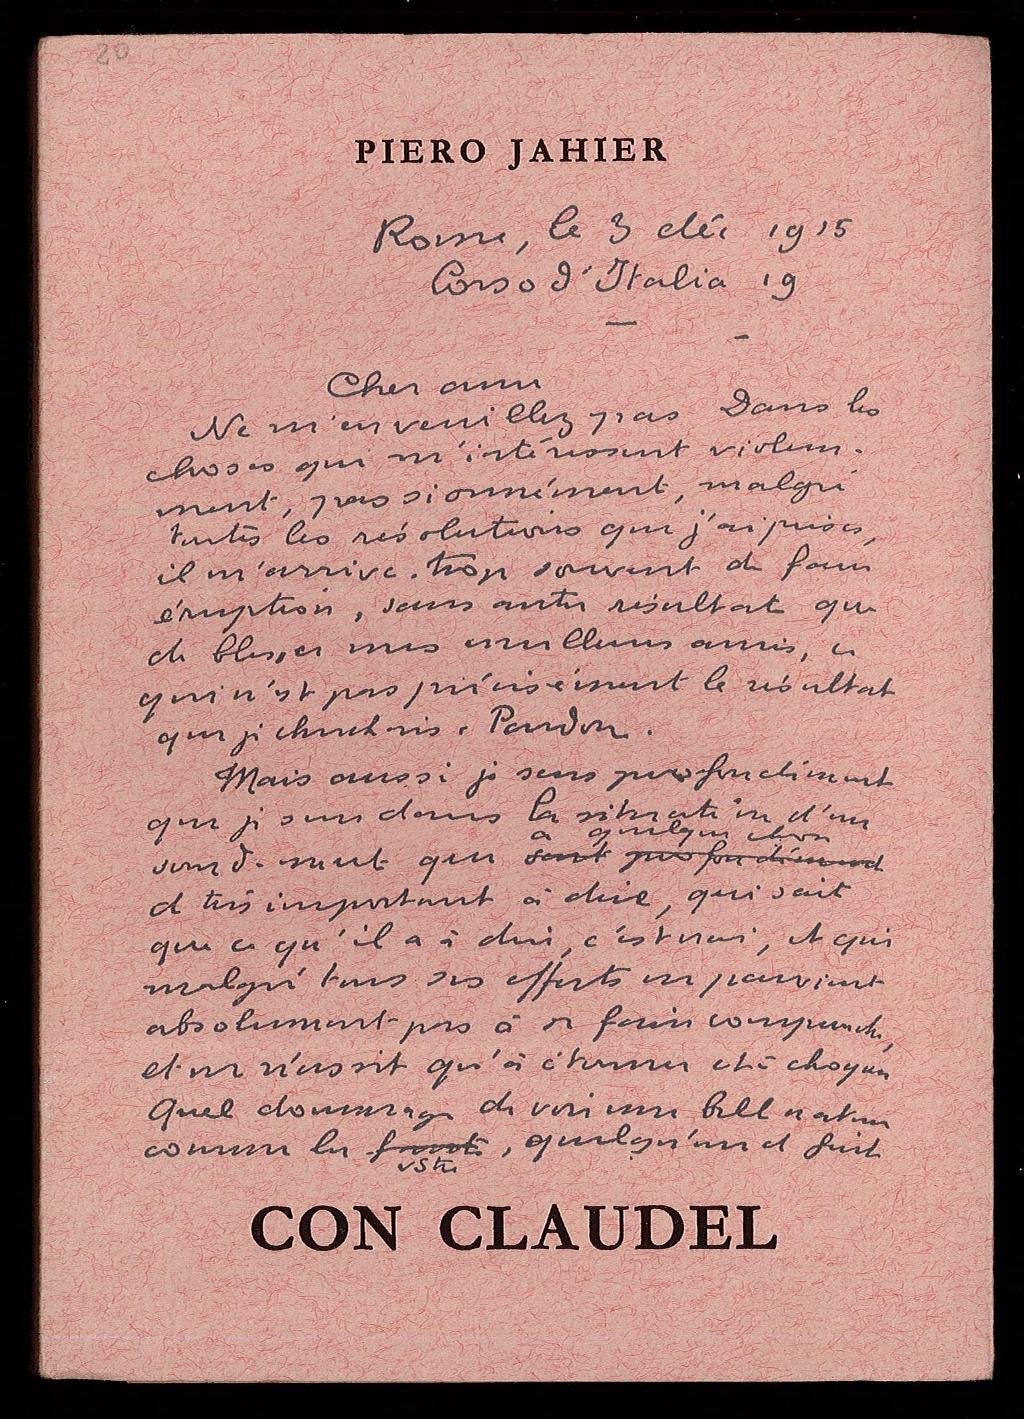 20
PIERO JAHIER
Rome, le 3 déc 1915
Corso d'Italia 19
Cher ami
Ne m'en veuillez pas Dans les
choses qui m'intéressent violem-
ment, passionnément, malgré
toutes les résolutions que j'ai prises,
il m'arrive trop souvent de faire
éruption, sans autre résultat que
de blesser mes meilleurs amis, ce
qui n'est pas précisément le résultat
que je cherchais. Pardon.
Mais aussi je sens profondément
que je suis dans la situation d'un
a quelque chose
sourd-muet que sent profondément
d très important à dire, qui sait
que ce qu'il a à dire, c'est vrai, et qui
malgré tous ses efforts ne parvient
absolument pas à se faire comprendre,
et ne réussit qu'à étonner et à choquer
Quel dommage de voir une belle nature
comme la
vôtre
, quelqu'un et fait
CON CLAUDEL